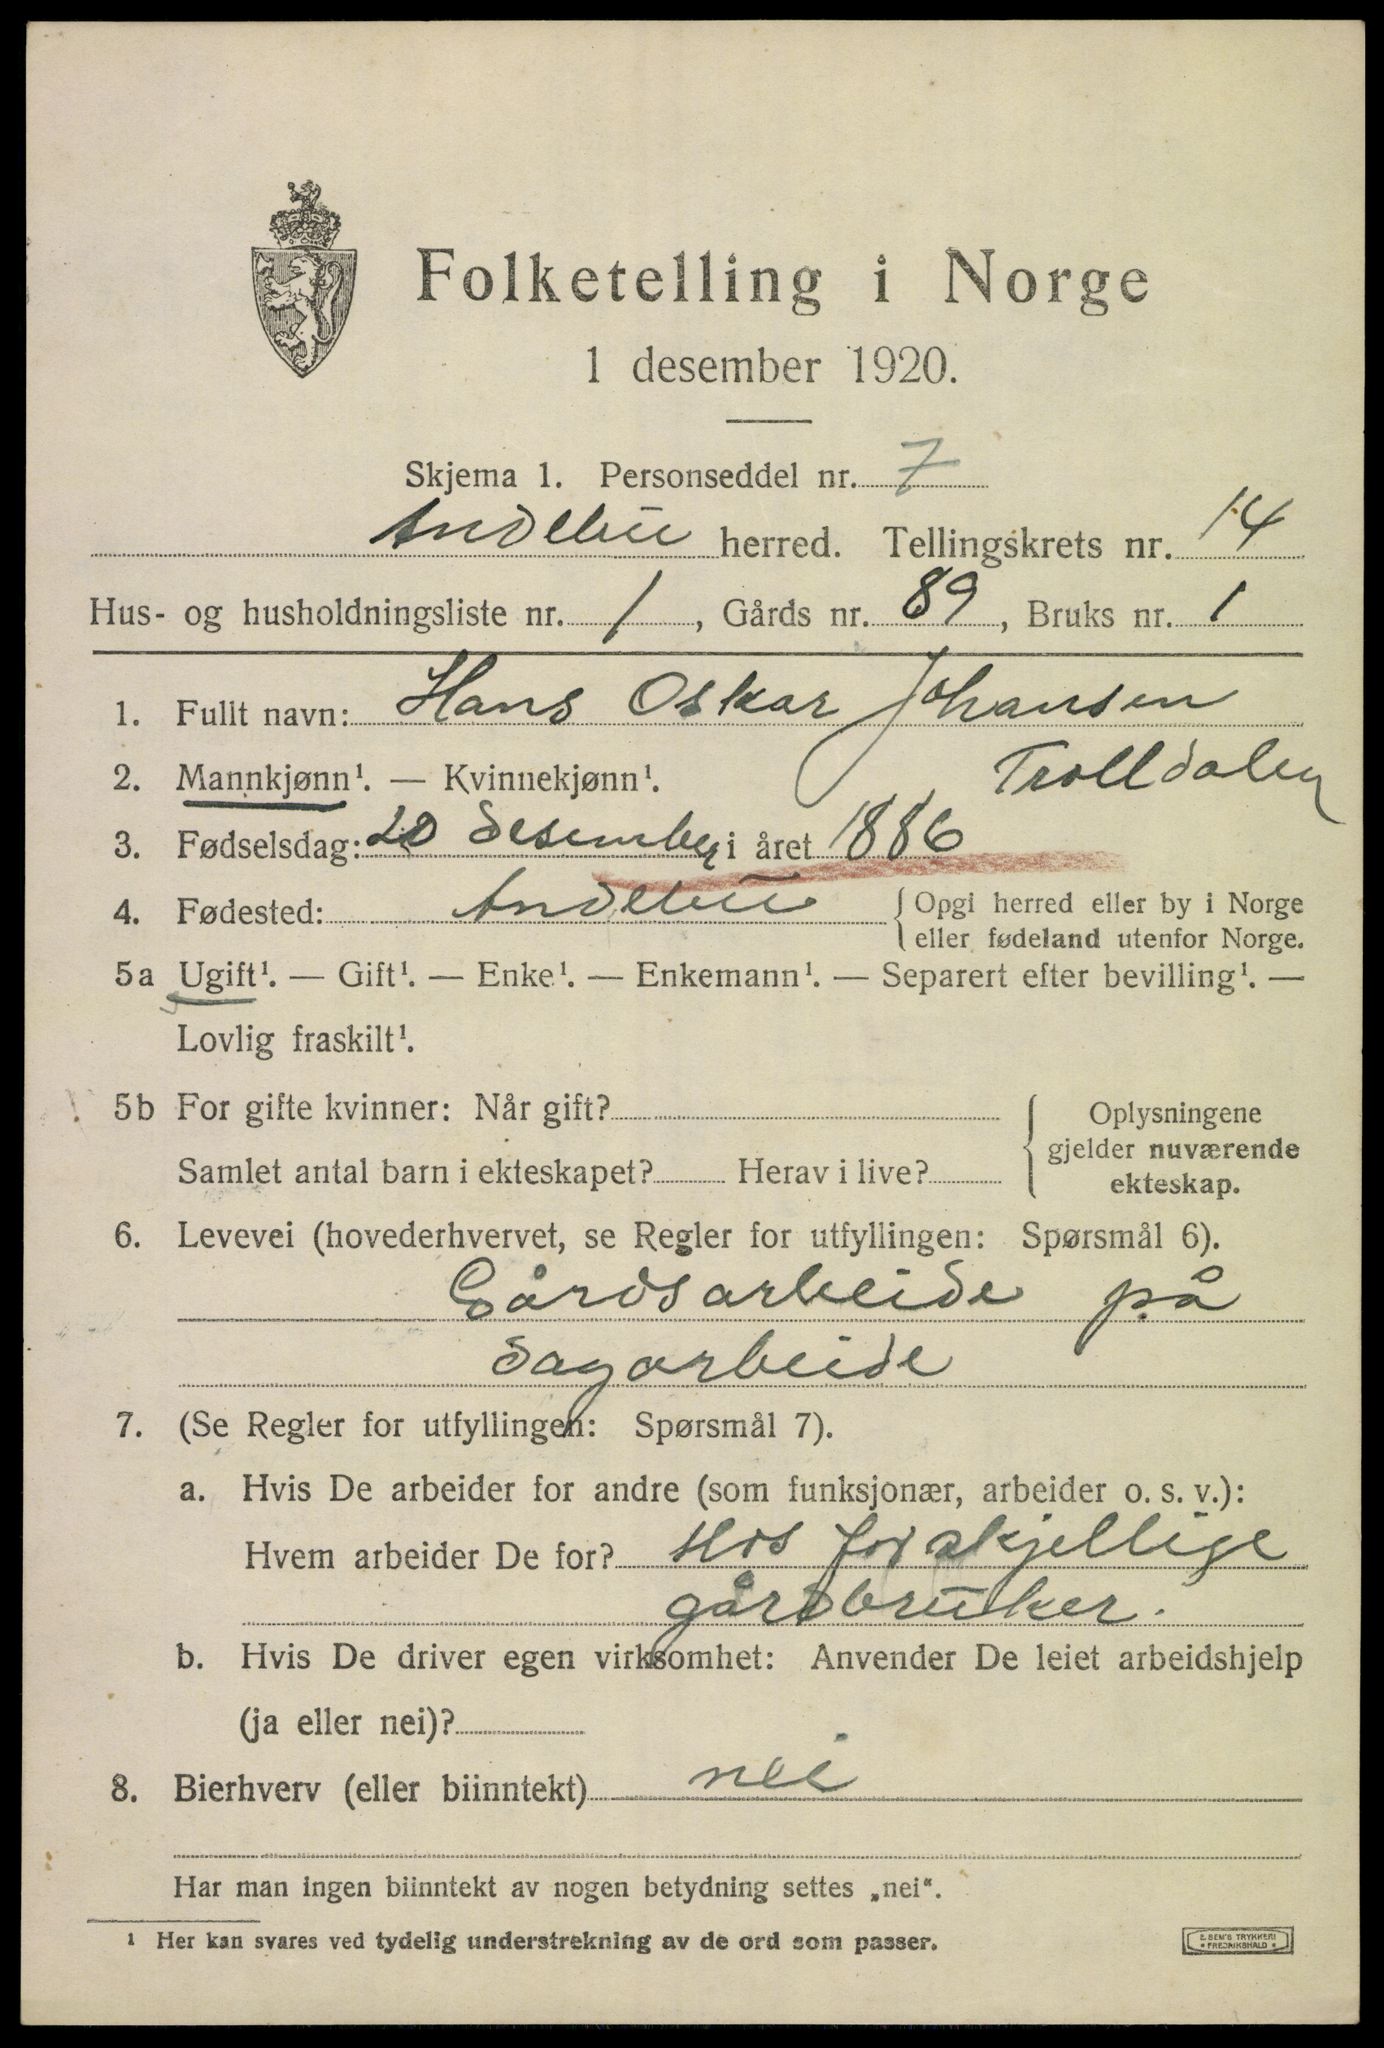 Folketelling i Norge
1 desember 1920.
Skjema 1. Personseddel nr. 7
Andebu herred. Tellingskrets nr. 14
Hus- og husholdningsliste nr. 1, Gårds nr. 89, Bruks nr. 1
1. Fullt navn: Hans Oskar Johansen
Trolldalen
2. Mannkjønn¹. — Kvinnekjønn¹.
3. Fødselsdag: 20 desember i året 1886
4. Fødested: Andebu { Opgi herred eller by i Norge
eller fødeland utenfor Norge.
5a Ugift¹. — Gift¹. — Enke¹. — Enkemann¹. — Separert efter bevilling¹. —
Lovlig fraskilt¹.
5b For gifte kvinner: Når gift? { Oplysningene
gjelder nuværende
Samlet antal barn i ekteskapet? Herav i live? ekteskap.
6. Levevei (hovederhvervet, se Regler for utfyllingen: Spørsmål 6).
Gårdsarbeide på
dagarbeide
7. (Se Regler for utfyllingen: Spørsmål 7).
a. Hvis De arbeider for andre (som funksjonær, arbeider o. s. v.):
Hvem arbeider De for? Hos forskjellige
gårdbruker.
b. Hvis De driver egen virksomhet: Anvender De leiet arbeidshjelp
(ja eller nei)?
8. Bierhverv (eller biinntekt) nei
Har man ingen biinntekt av nogen betydning settes „nei“.
¹ Her kan svares ved tydelig understrekning av de ord som passer.
E. SEM'S TRYKKERI
* FREDRIKSHALD *